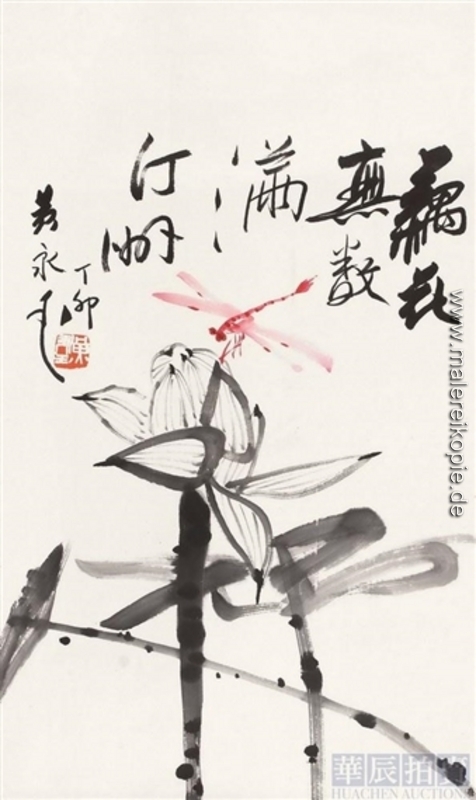 藕花
無數
滿
汀洲
丁卯
吴永良
www.malereikopie.de
華辰拍賣
HUACHEN AUCTIONS